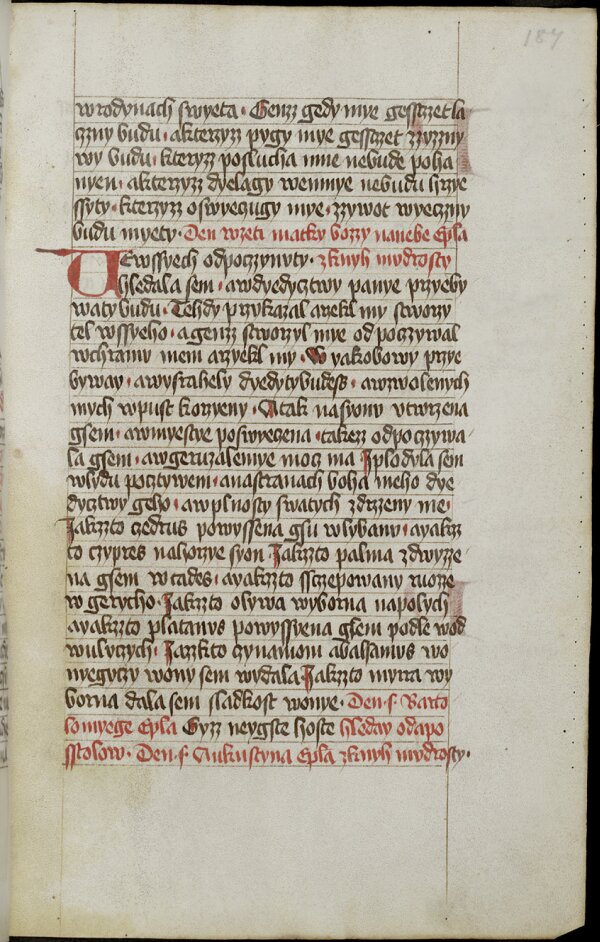 187
wrodynach swyeta · Genzz gedy mye gesstzet la
czny budu · akterzyzz pygy mye gesstzet zzyzny
wy budu · kteryzz poslucha mne nebude poha
nyen · akterzyzz dyelagy wemnye nebudu hrzye
ssyty · kterzyzz oswyeczugy mye · zzywot wyeczny
budu myety · Den wzeti matky bozzy nanebe Epla
Uewssyech odpoczynyty · zknyh mudrosty
hledala sem · awdyedycztwy panye przyeby
waty budu · Tehdy przykazal arzekl my stworzy
tel wssyeho · agenzz stworzyl mye odpoczywal
wchramy mem arzyekl my · W yakobowy przye
byway · awysrahely dyedytybudess · awzwolenych
mych wpust korzyeny · Atak nasyony utwrzena
gsem · awmyestye poswyeczena · takezz odpoczywa
la gsem · awgeruzalemye mocz ma Iplodyla sem
wlydu pocztywem · anastranach boha meho dye
dycztwy geho · awplnosty swatych zdrzeny me ·
Jakzzto czedrus powyssena gsu wlybany · ayakzz
to czypres nahorzye syon Jakzzto palma zdwyzze
na gsem w cades · ayakzzto sszczepowany ruozze
w gerycho · Jakzzto olywa wyborna napolych
ayakzzto platanus powyssyena gsem podle wod
wulyczych · Jazzkto czynamom abalsamus wo
nyegyczy wony sem wydala Jakzzto myrra wy
borna dala sem sladkost wonye · Den s. Barto
lomyege Epla Gyzz neygste hoste hleday odapo
sstolow · Den s. Aukustyna Epla zknyh mudrosty ·